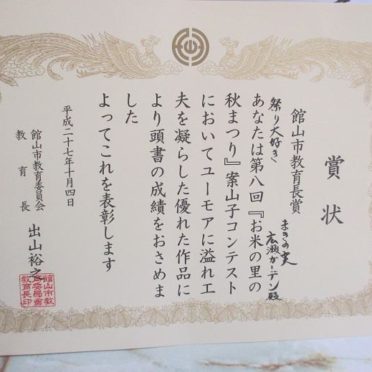 賞状
館山市教育長賞
祭り大好き
まきの実
広瀬ガーデン殿
あなたは第八回『お米の里の
秋まつり』案山子コンテスト
においてユーモアに溢れ工
夫を凝らした優れた作品に
より頭書の成績をおさめま
した
よってこれを表彰します
平成二十七年十月四日
館山市教育委員会
教育長 出山裕之
館山市教
育委員会
教育長印